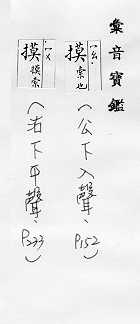 彙音寶鑑
摸 摸索也
(公下入聲、P152)
摸 摸索
(沽下平聲、P233)